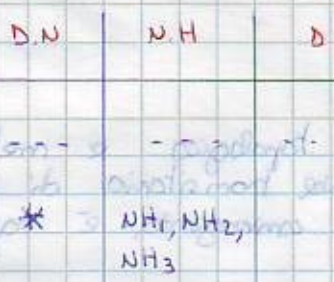 D.N N.H D
--- ---- --
* NH1, NH2,
NH3